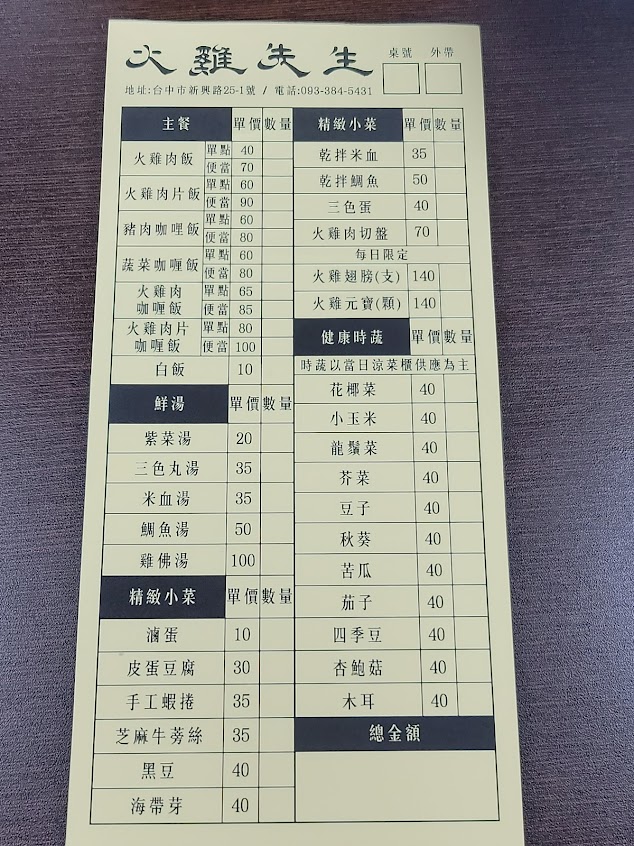 火雞先生
桌號 外帶
地址:台中市新興路25-1號 / 電話:093-384-5431
主餐 單價 數量
火雞肉飯 單點 40
便當 70
火雞肉片飯 單點 60
便當 90
豬肉咖哩飯 單點 60
便當 80
蔬菜咖喱飯 單點 60
便當 80
火雞肉咖喱飯 單點 65
便當 85
火雞肉片咖喱飯 單點 80
便當 100
白飯 10
鮮湯 單價 數量
紫菜湯 20
三色丸湯 35
米血湯 35
鯛魚湯 50
雞佛湯 100
精緻小菜 單價 數量
滷蛋 10
皮蛋豆腐 30
手工蝦捲 35
芝麻牛蒡絲 35
黑豆 40
海帶芽 40
精緻小菜 單價 數量
乾拌米血 35
乾拌鯛魚 50
三色蛋 40
火雞肉切盤 70
每日限定
火雞翅膀(支) 140
火雞元寶(顆) 140
健康時蔬 單價 數量
時蔬以當日涼菜櫃供應為主
花椰菜 40
小玉米 40
龍鬚菜 40
芥菜 40
豆子 40
秋葵 40
苦瓜 40
茄子 40
四季豆 40
杏鮑菇 40
木耳 40
總金額